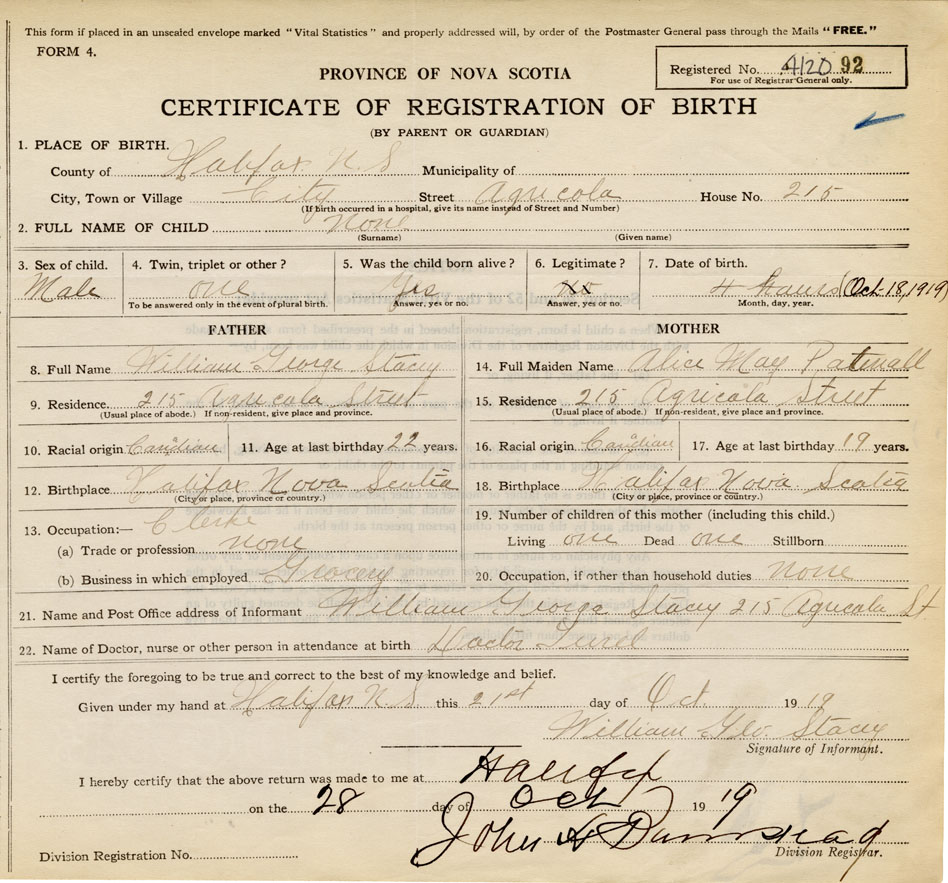 This form if placed in an unsealed envelope marked "Vital Statistics" and properly addressed will, by order of the Postmaster General pass through the Mails "FREE."
FORM 4.
Registered No. 4120 92
For use of Registrar General only.
PROVINCE OF NOVA SCOTIA
CERTIFICATE OF REGISTRATION OF BIRTH
(BY PARENT OR GUARDIAN)
1. PLACE OF BIRTH.
County of Halifax N.S Municipality of
City, Town or Village City Street Agricola House No. 215
(If birth occurred in a hospital, give its name instead of Street and Number)
2. FULL NAME OF CHILD None
(Surname) (Given name)
3. Sex of child. 4. Twin, triplet or other? 5. Was the child born alive? 6. Legitimate? 7. Date of birth.
Male one Yes 4 hours (Oct 18, 1919)
To be answered only in the event of plural birth. Answer, yes or no. Answer, yes or no. Month, day, year.
FATHER MOTHER
8. Full Name William George Stacey 14. Full Maiden Name Alice May
9. Residence. 215 Agricola Street 15. Residence 215 Agricola Street
(Usual place of abode.) If non-resident, give place and province. (Usual place of abode.) If non-resident, give place and province.
10. Racial origin Canadian 11. Age at last birthday 22 years. 16. Racial origin Canadian 17. Age at last birthday 19 years.
12. Birthplace Halifax Nova Scotia 18. Birthplace Halifax Nova Scotia
(City or place, province or country.) (City or place, province or country.)
13. Occupation:— Clerke 19. Number of children of this mother (including this child.)
(a) Trade or profession none Living one Dead one Stillborn
(b) Business in which employed Grocery 20. Occupation, if other than household duties None
21. Name and Post Office address of Informant William George Stacey 215 Agricola St
22. Name of Doctor, nurse or other person in attendance at birth Doctor
I certify the foregoing to be true and correct to the best of my knowledge and belief.
Given under my hand at Halifax N.S. this 21st day of Oct. 19 19
William Geo. Stacey
Signature of Informant.
I hereby certify that the above return was made to me at Halifax
on the 28 day of Oct 19 19
John A
Division Registration No. Division Registrar.